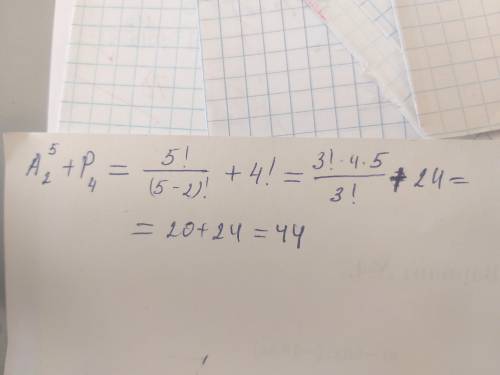 A₂⁵ + P₄ = 5! / (5-2)! + 4! = 3! · 4 · 5 / 3! + 24 =
= 20 + 24 = 44